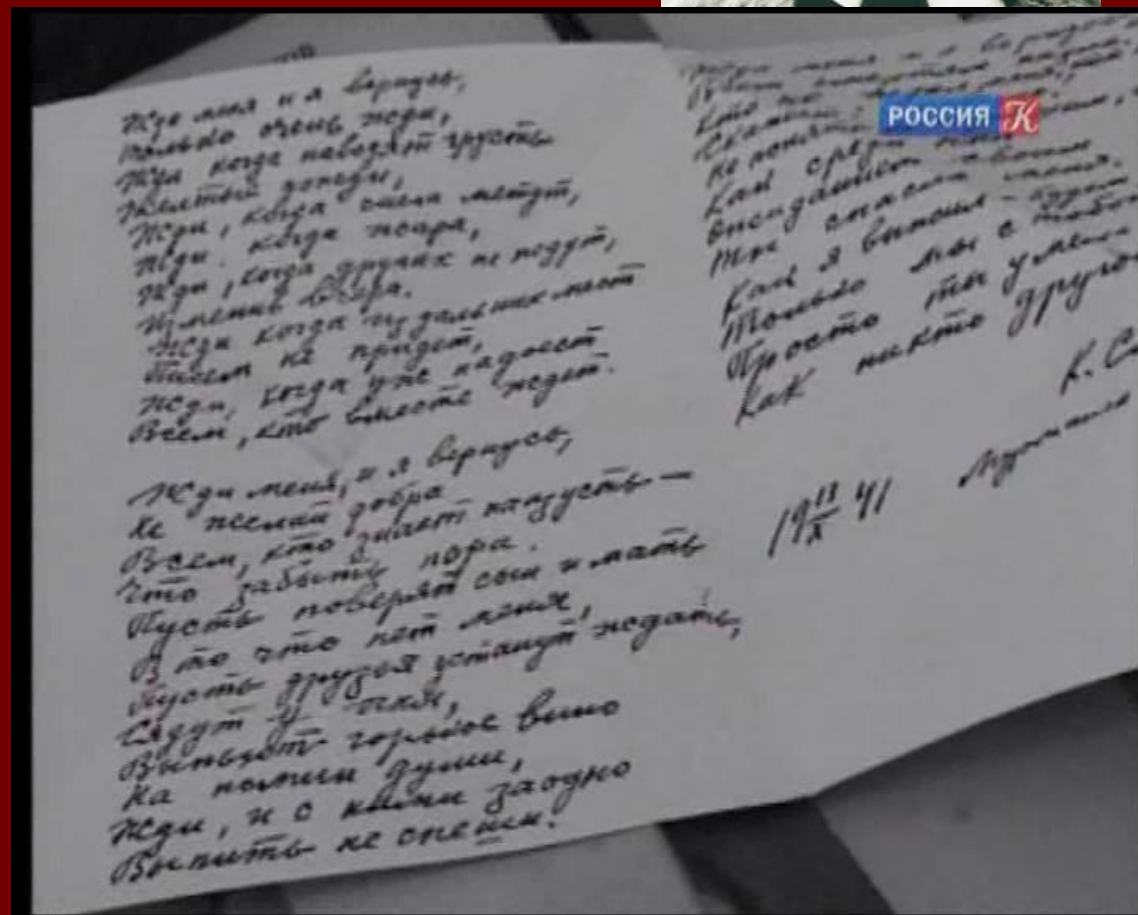 Жди меня и я вернусь,
Только очень жди,
Жди когда наводят грусть
Желтые дожди,
Жди, когда снега метут,
Жди когда жара,
Жди, когда других не ждут,
Изменив вчера.
Жди когда из дальних мест
Писем не придет,
Жди, когда уже надоест
Всем, кто вместе ждет.
Жди меня, и я вернусь,
Не желай добра
Всем, кто знает наизусть —
Что забыть пора.
Пусть поверят сын и мать
В то что нет меня,
Пусть друзья устанут ждать,
Сядут у огня,
Выпьют горькое вино
На помин души,
Жди, и с ними заодно
Выпить не спеши.
Жди меня и я вернусь
Всем смертям назло.
Кто не меня,
Скажет
Не понять
Как среди
Ожиданием своим
Ты спасла меня.
Как я выжил – будем
Только мы с тобой
Просто ты умела
Как никто другой
К. С
19 13/X 41
РОССИЯ К